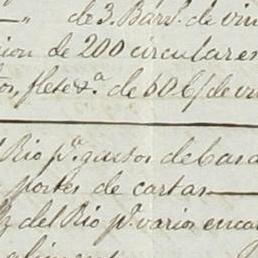 " de 3. Barrs. de vin
ion de 200 circulares
tos, flete &a. de 60 b/ de vi
Rio pa. gastos de casa
portes de cartas
del Rio pa. varios encar